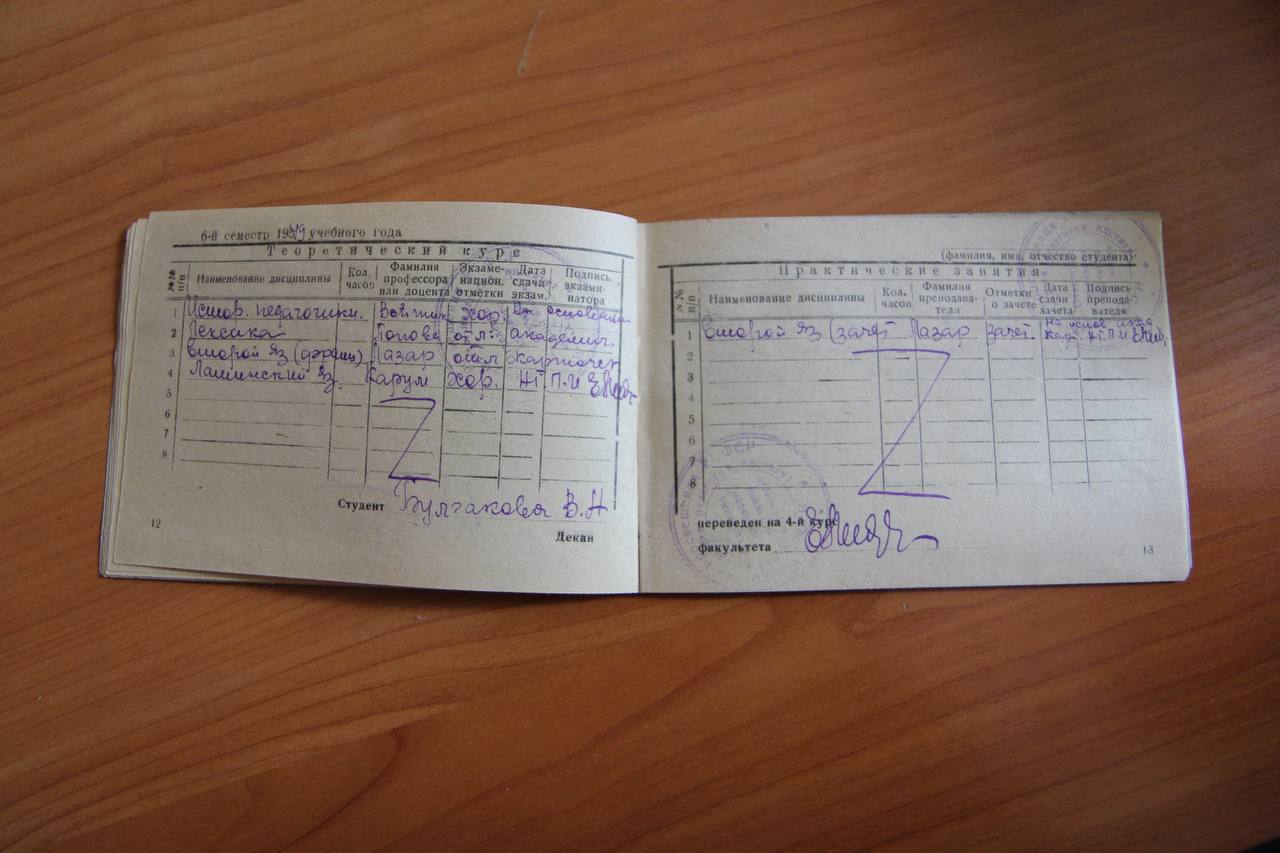 6-й семестр 19 учебного года
Теоретический курс
№№ п/п Наименование дисциплины Кол. часов Фамилия профессора или доцента Экзаменацион. отметки Дата сдачи экзам. Подпись экзаменатора
1 Истор. педагогики. хор. На основании
2 Лексика Попова отл. академич.
3 Второй яз (франц) Лазар отл карточек
4 Латинский яз. Карум хор. П.И
5
6
7
8
Студент Булгакова В.Н
12
Декан
(фамилия, имя, отчество студента)
Практические занятия
№№ п/п Наименование дисциплины Кол. часов Фамилия преподавателя Отметки о зачете Дата сдачи зачета Подпись преподавателя
1 Второй яз (зачет Лазар зачет. На основ. акад. кар. П.И
2
3
4
5
6
7
8
переведен на 4-й курс
факультета
13